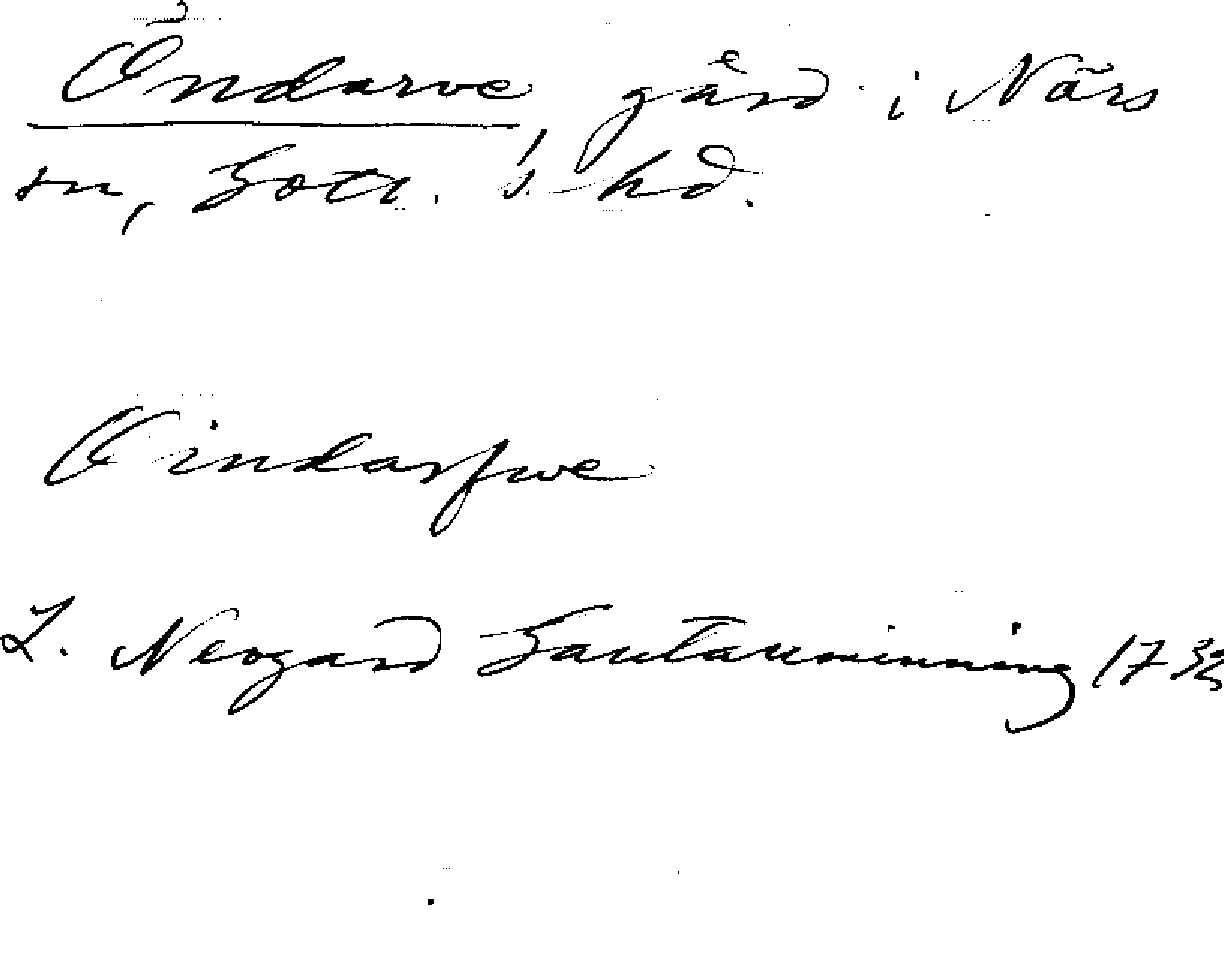 Öndarve, gård i Närs
sn, Gotl. s. hd.
Oindarfwe
L. Neogard Gautauminning 1732